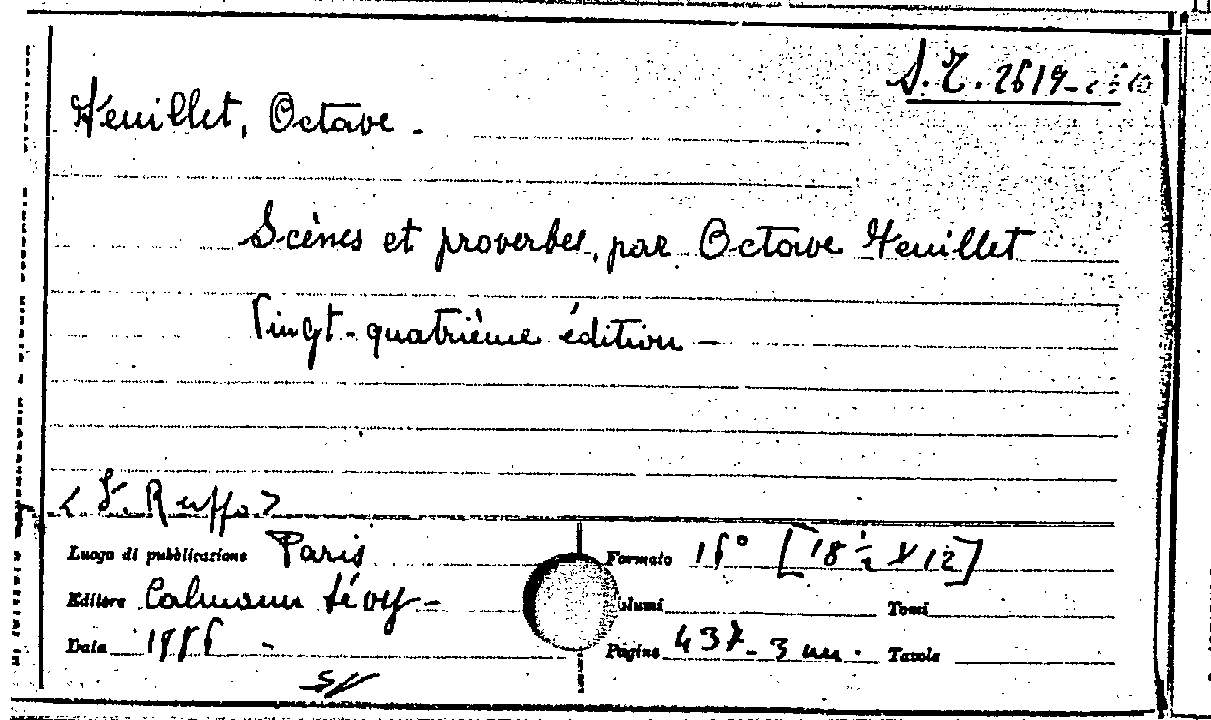 S. T. 2619-
Feuillet, Octave.
Scènes et proverbes, par Octave Feuillet
Vingt-quatrième édition —
< F. Ruffo >
Luogo di pubblicazione Paris Formato 16° [18 ½ X 12]
Editore Calmann Lévy - Volumi Tomi
Data 1886 - Pagine 437 - 3 nn. Tavole